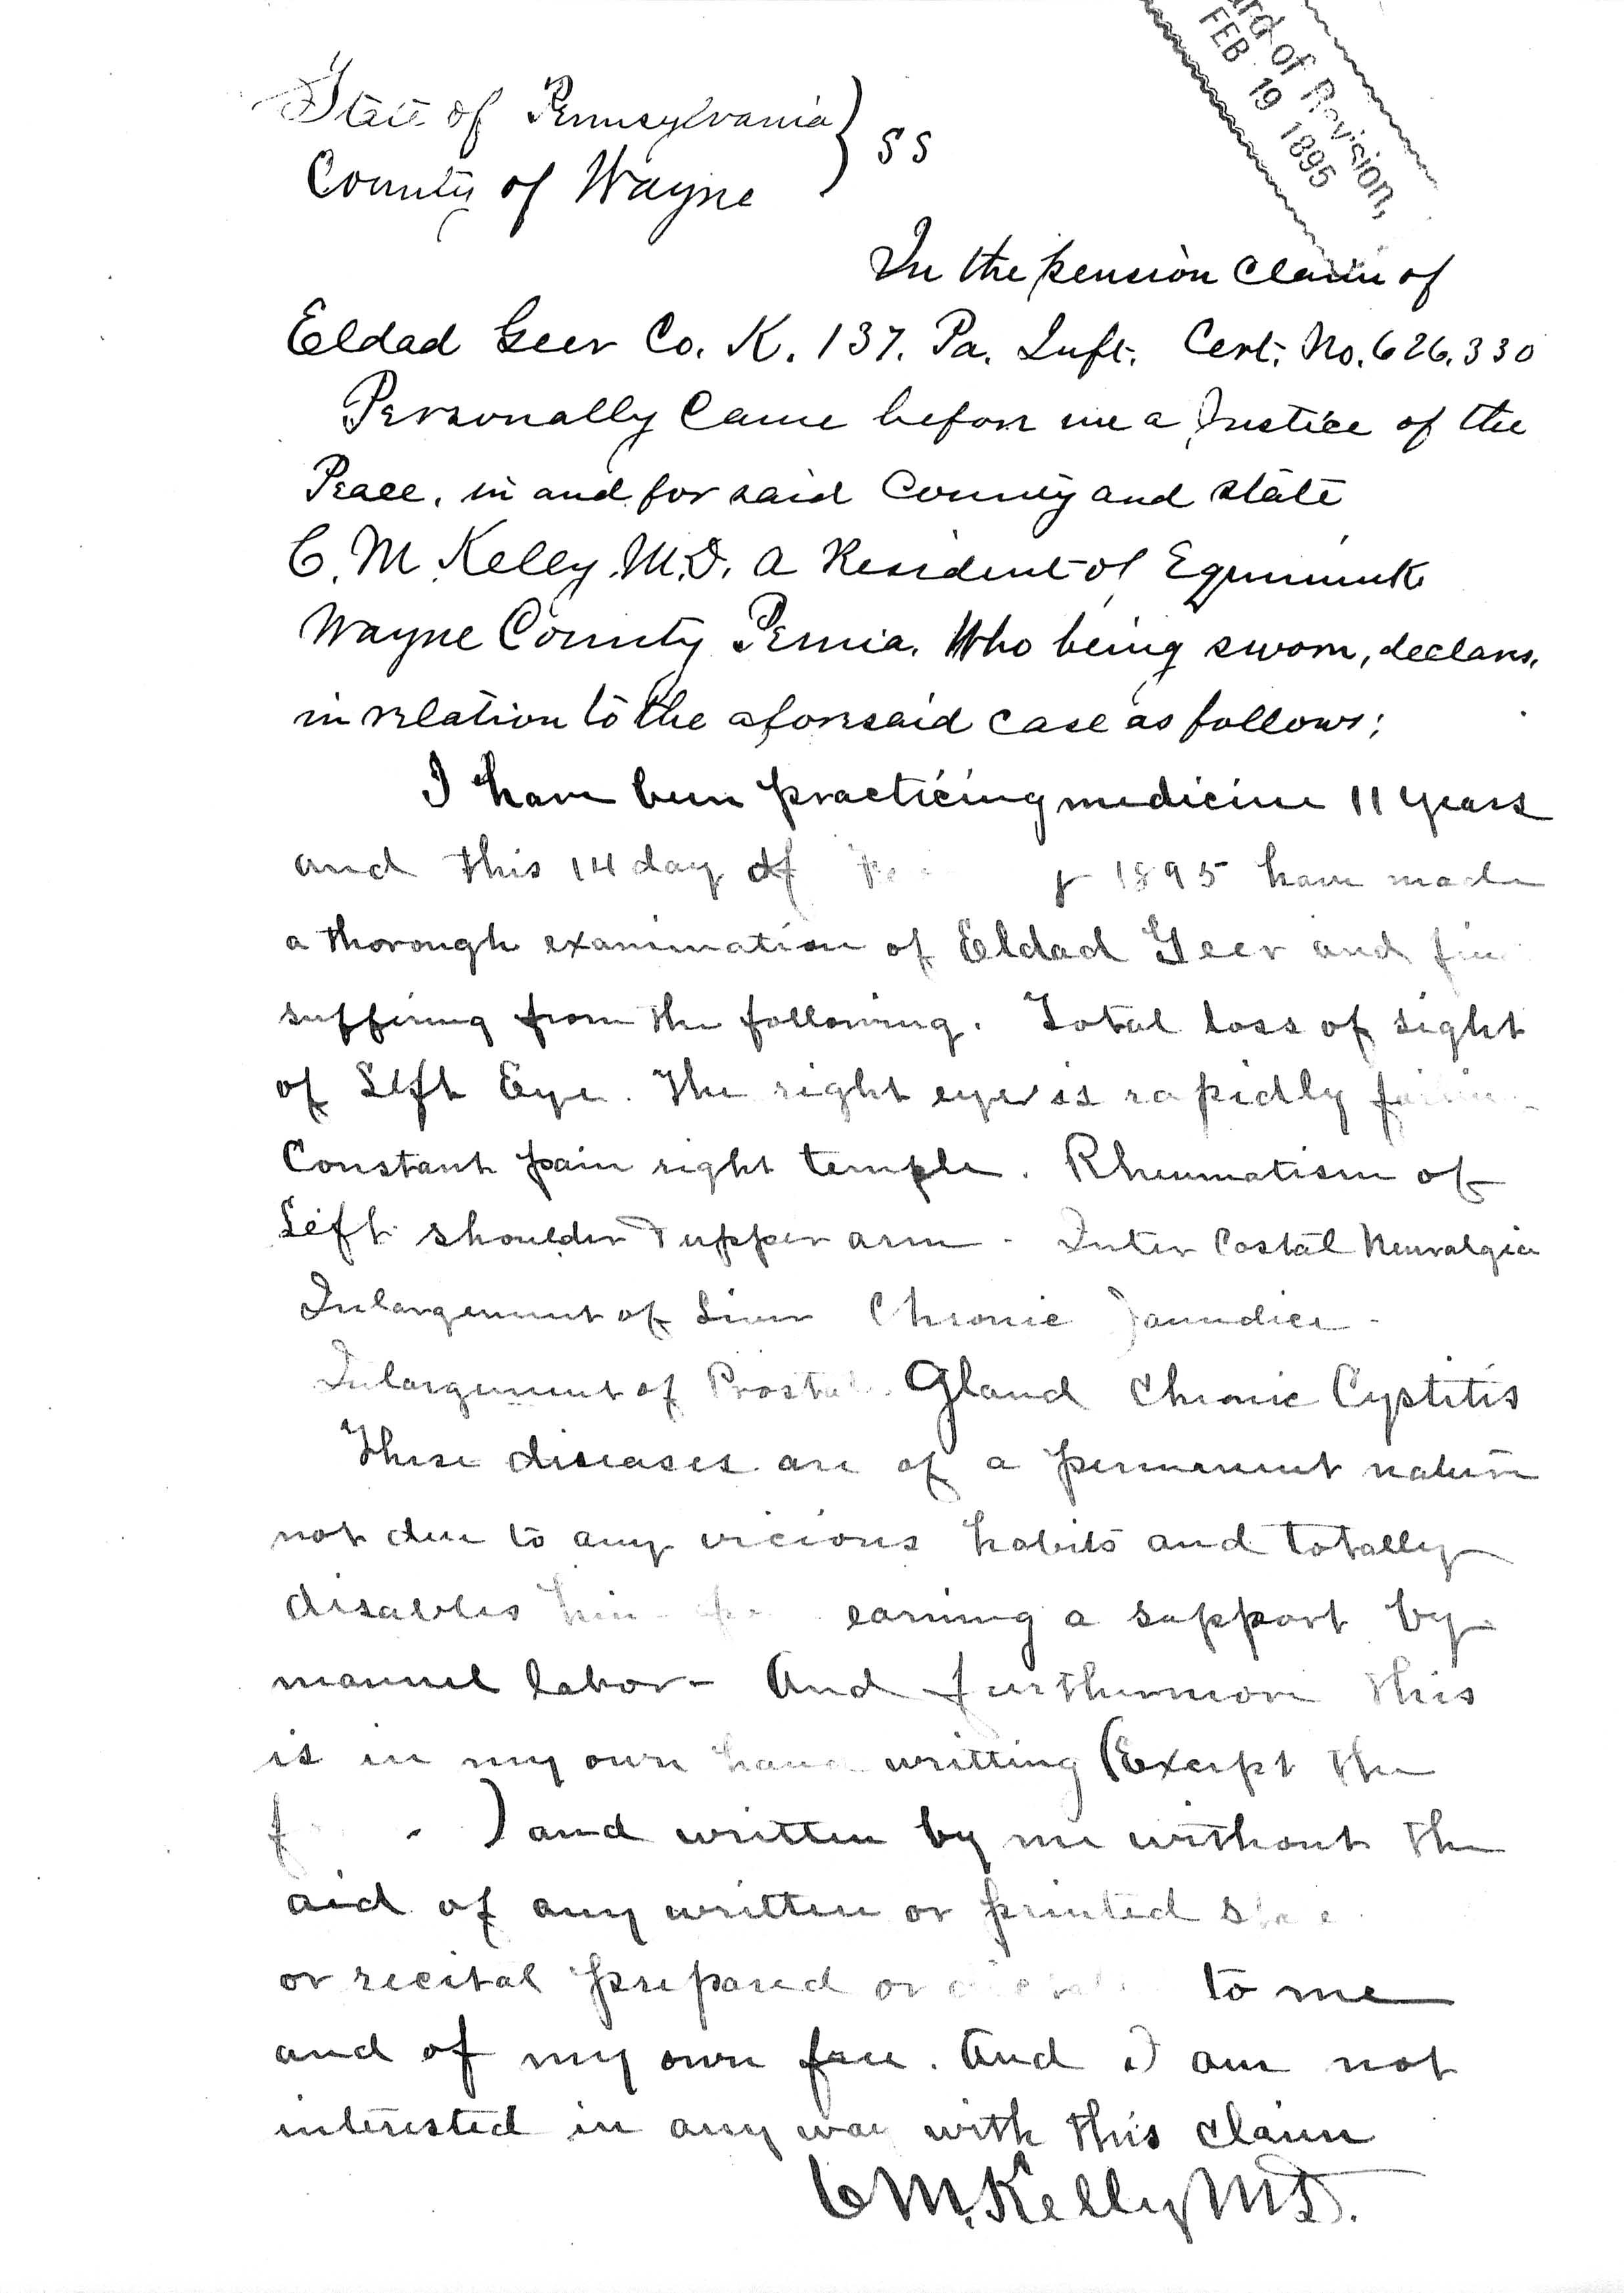 ard of Revision,
FEB 19 1895
State of Pennsylvania } SS
County of Wayne
In the pension claim of
Eldad Geer Co. K. 137. Pa. Inft. Cert. No. 626.330
Personally Came before me a Justice of the
Peace, in and for said County and state
C. M. Kelly M.D. a Resident of Equinunk
Wayne County Penna. Who being sworn, declares,
in relation to the aforesaid case as follows;
I have been practicing medicine 11 years
and this 14 day of 1895 have made
a thorough examination of Eldad Geer and
suffering from the following. Total loss of sight
of Left Eye. The right eye is rapidly
Constant pain right temple. Rheumatism of
Left shoulder & upper arm - Inter Costal Neuralgia
Inlargement of Liver Chronic Jaundice -
Inlargement of Prostate Gland Chronic Cystitis
These diseases are of a permenent nature
not due to any vicious habits and totally
disables him earning a support by
manuel labor - And furthermore this
is in my own hand writting (Except the
) and written by me without the
aid of any written or printed
or recital prepared or to me
and of my own free. And I am not
interested in any way with this claim
C M. Kelly M.D.